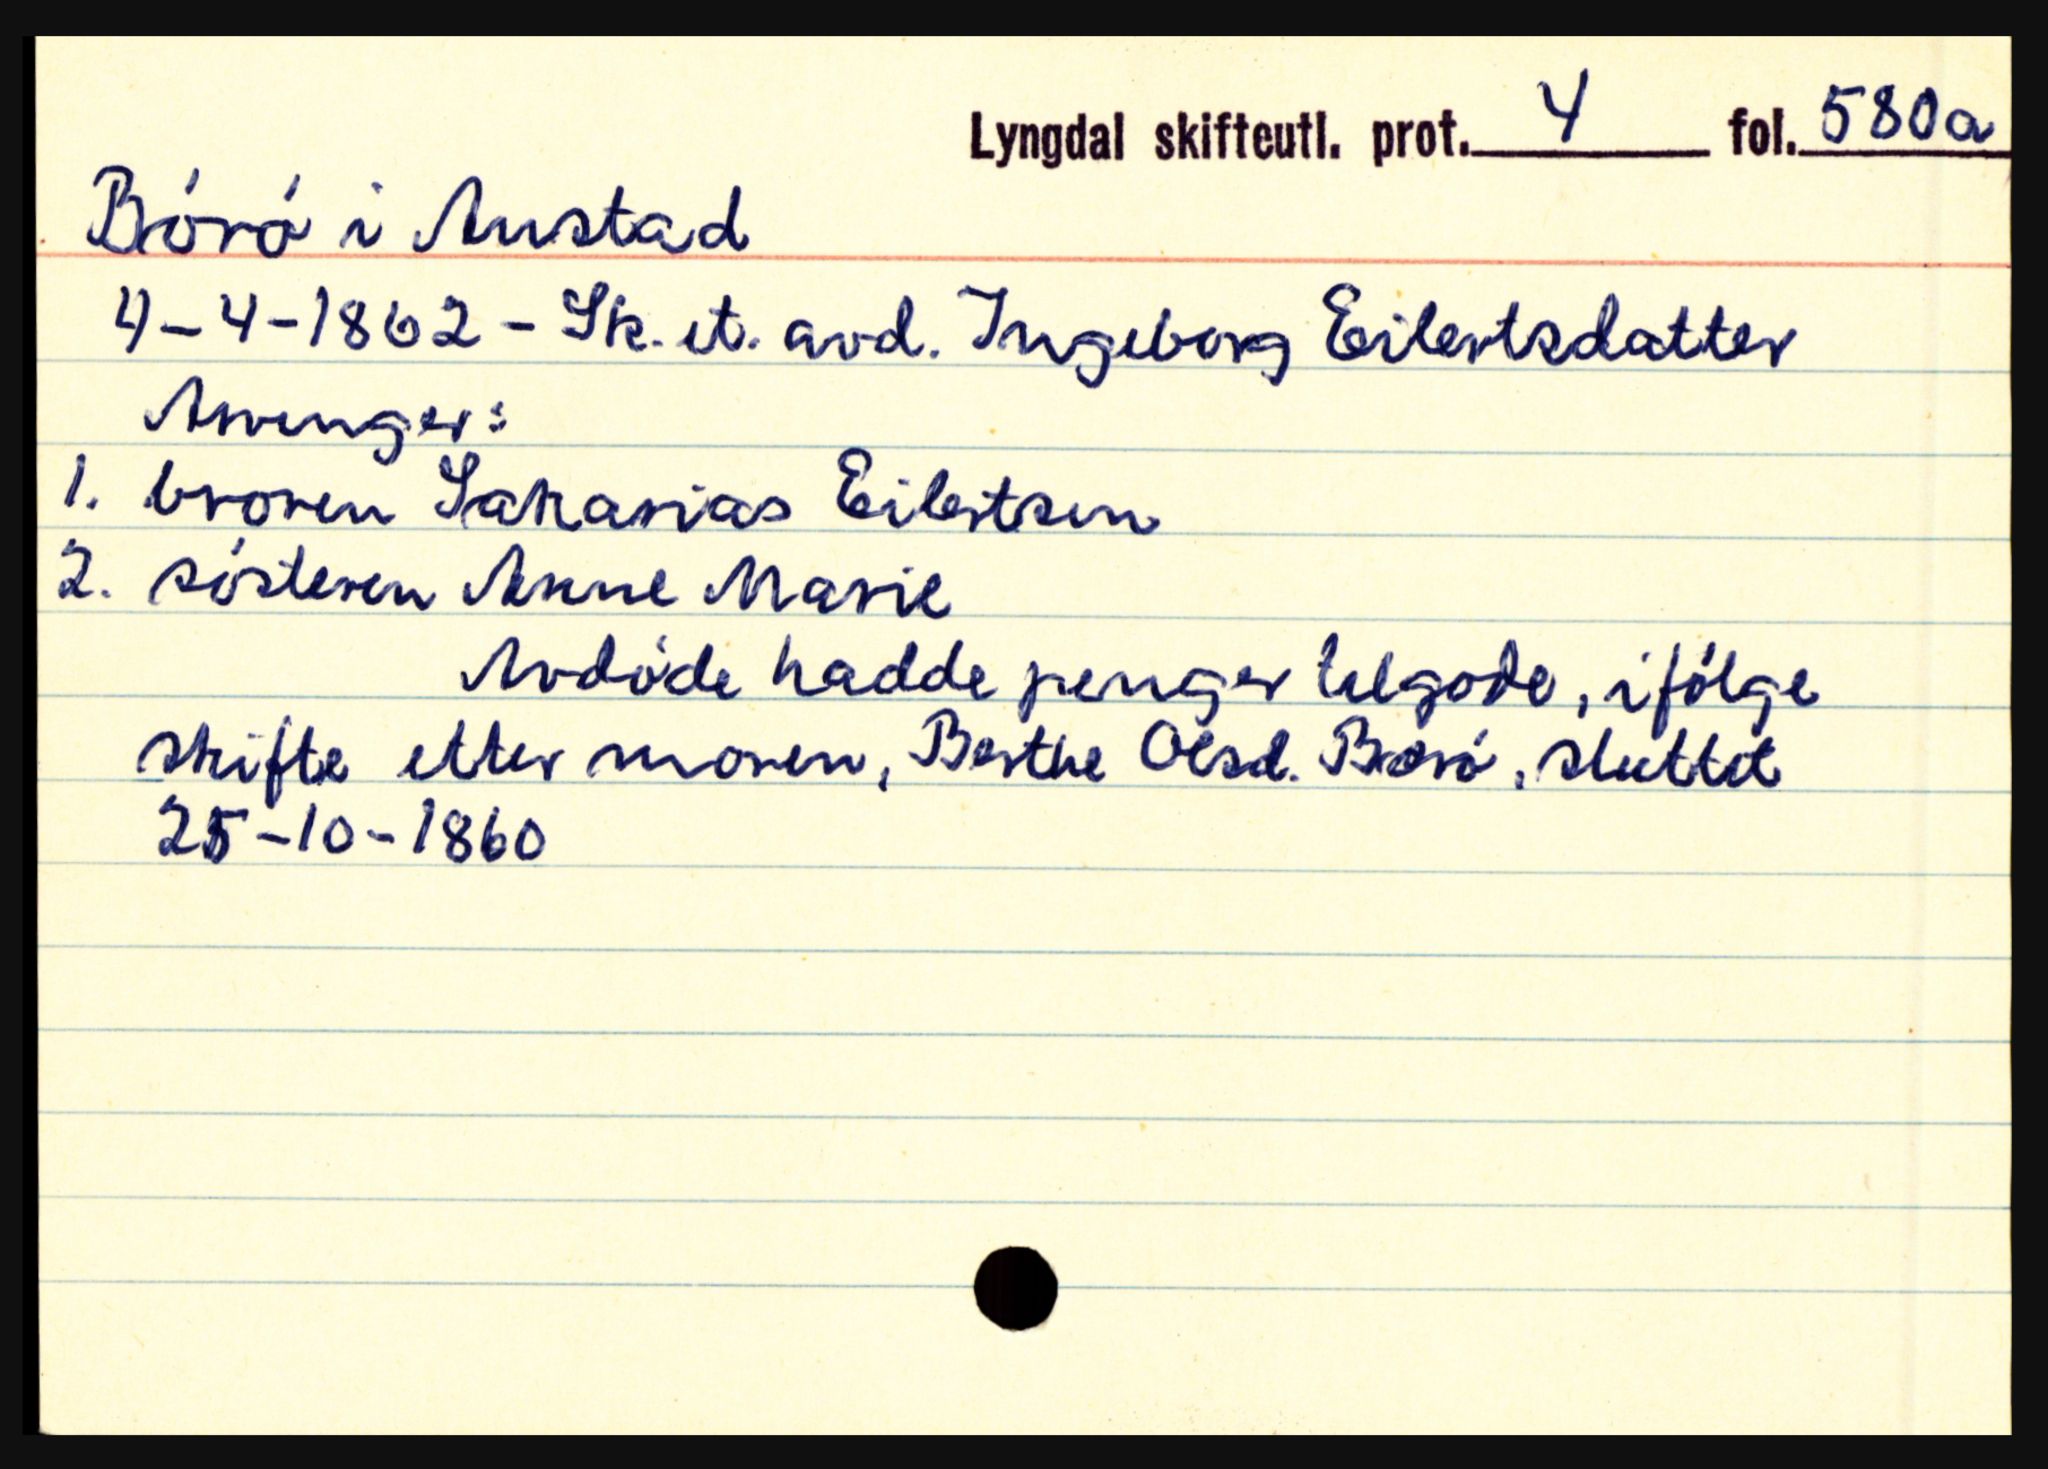 Lyngdal skifteutl. prot. 4 fol. 580a
Bóró i Austad
4-4-1862 - Sk. et. avd. Ingeborg Eilertsdatter
Arvinger:
1. broren Sakarias Eilertsen
2. sósteren Anne Marie
Avdóde hadde penger tilgode, ifólge
skifte etter moren, Berthe Olsd. Bóró, sluttet
25-10-1860